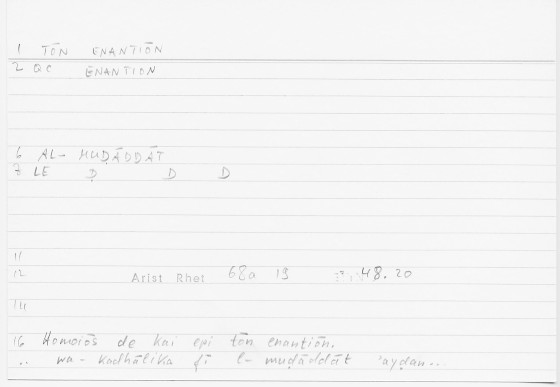 1 TŌN ENANTIŌN
2 QC ENANTION
6 AL- MUḌĀDDĀT
7 LE Ḍ D D
11
12 Arist Rhet 68a 19 48.20
14
16 Homoiōs de kai epi tōn enantiōn.
.. wa-kadhālika fī l-muḍāddāt 'ayḍan...